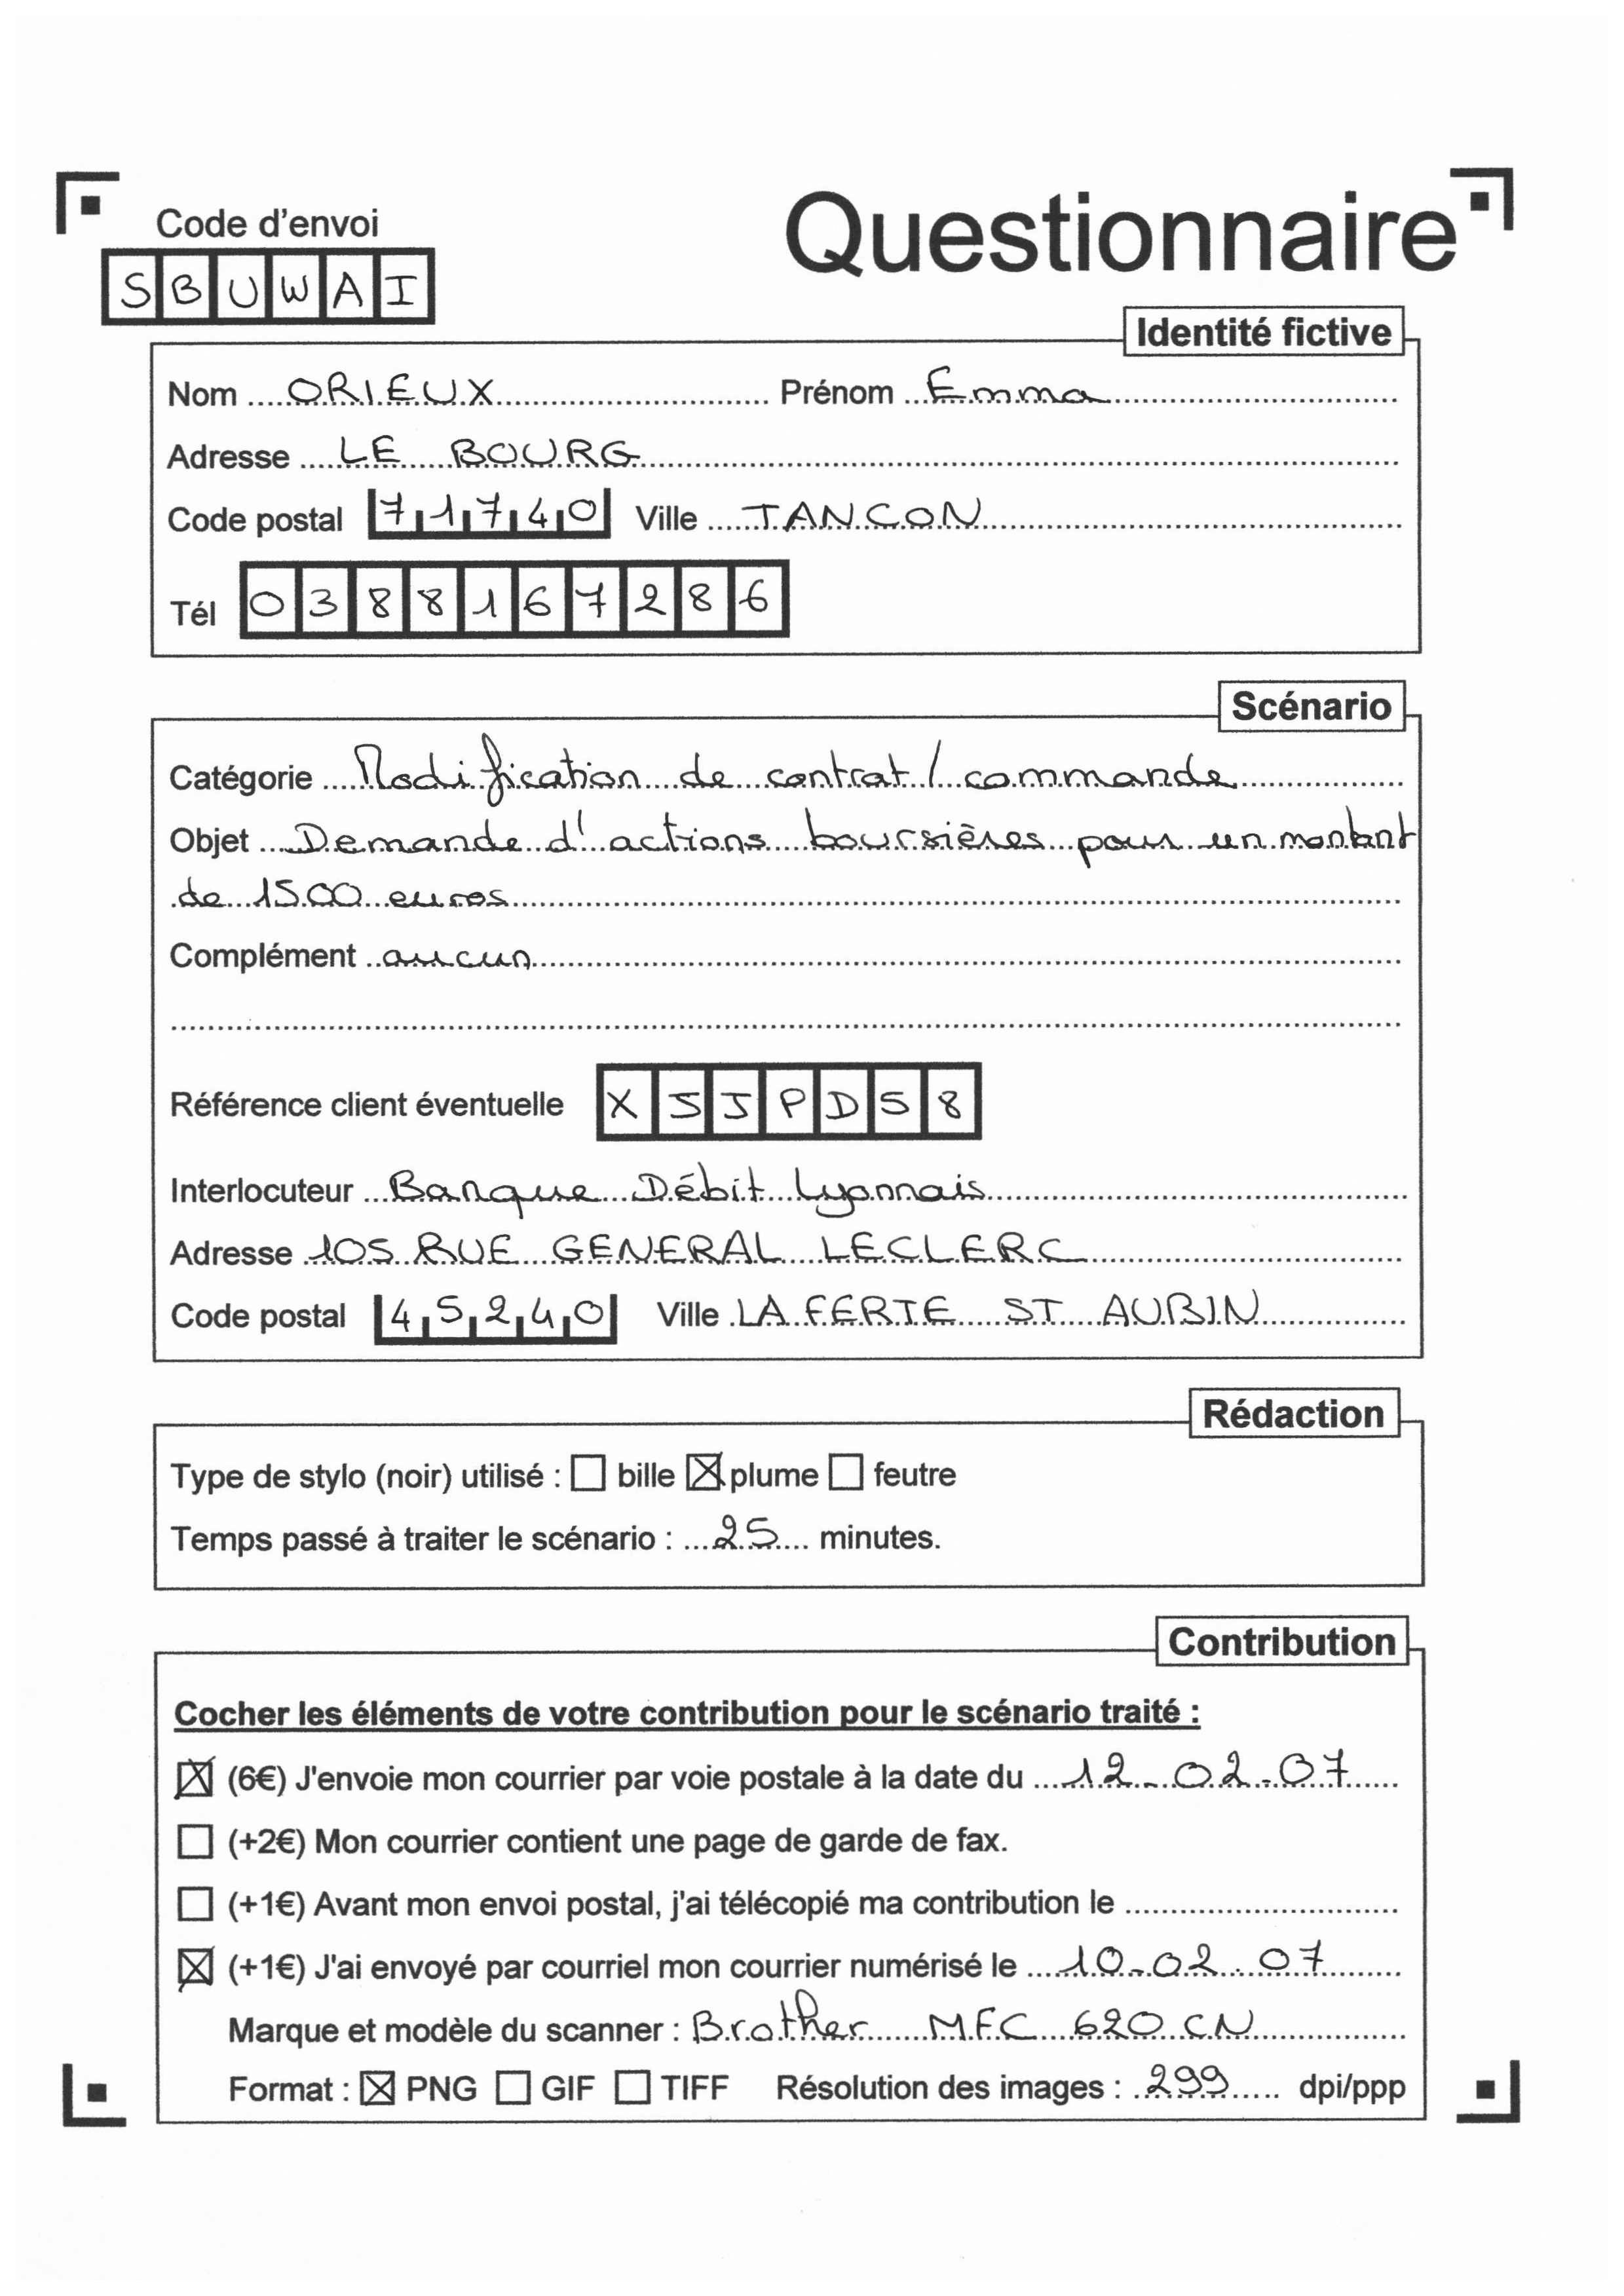 Code d'envoi
Questionnaire
SBUWAI
Identité fictive
Nom ORIEUX Prénom Emma
Adresse LE BOURG
Code postal 71740 Ville TANCON
Tél 0388167286
Scénario
Catégorie Modification de contrat / commande
Objet Demande d'actions boursières pour un montant
de 1500 euros
Complément aucun
Référence client éventuelle XJJPDS8
Interlocuteur Banque Débit Lyonnais
Adresse 105 RUE GENERAL LECLERC
Code postal 45240 Ville LA FERTE ST AUBIN
Rédaction
Type de stylo (noir) utilisé : ☐ bille ☒ plume ☐ feutre
Temps passé à traiter le scénario : 25 minutes.
Contribution
Cocher les éléments de votre contribution pour le scénario traité :
☒ (6€) J'envoie mon courrier par voie postale à la date du 12-02-07
☐ (+2€) Mon courrier contient une page de garde de fax.
☐ (+1€) Avant mon envoi postal, j'ai télécopié ma contribution le
☒ (+1€) J'ai envoyé par courriel mon courrier numérisé le 10-02-07
Marque et modèle du scanner : Brother MFC 620 CN
Format : ☒ PNG ☐ GIF ☐ TIFF Résolution des images : 299 dpi/ppp